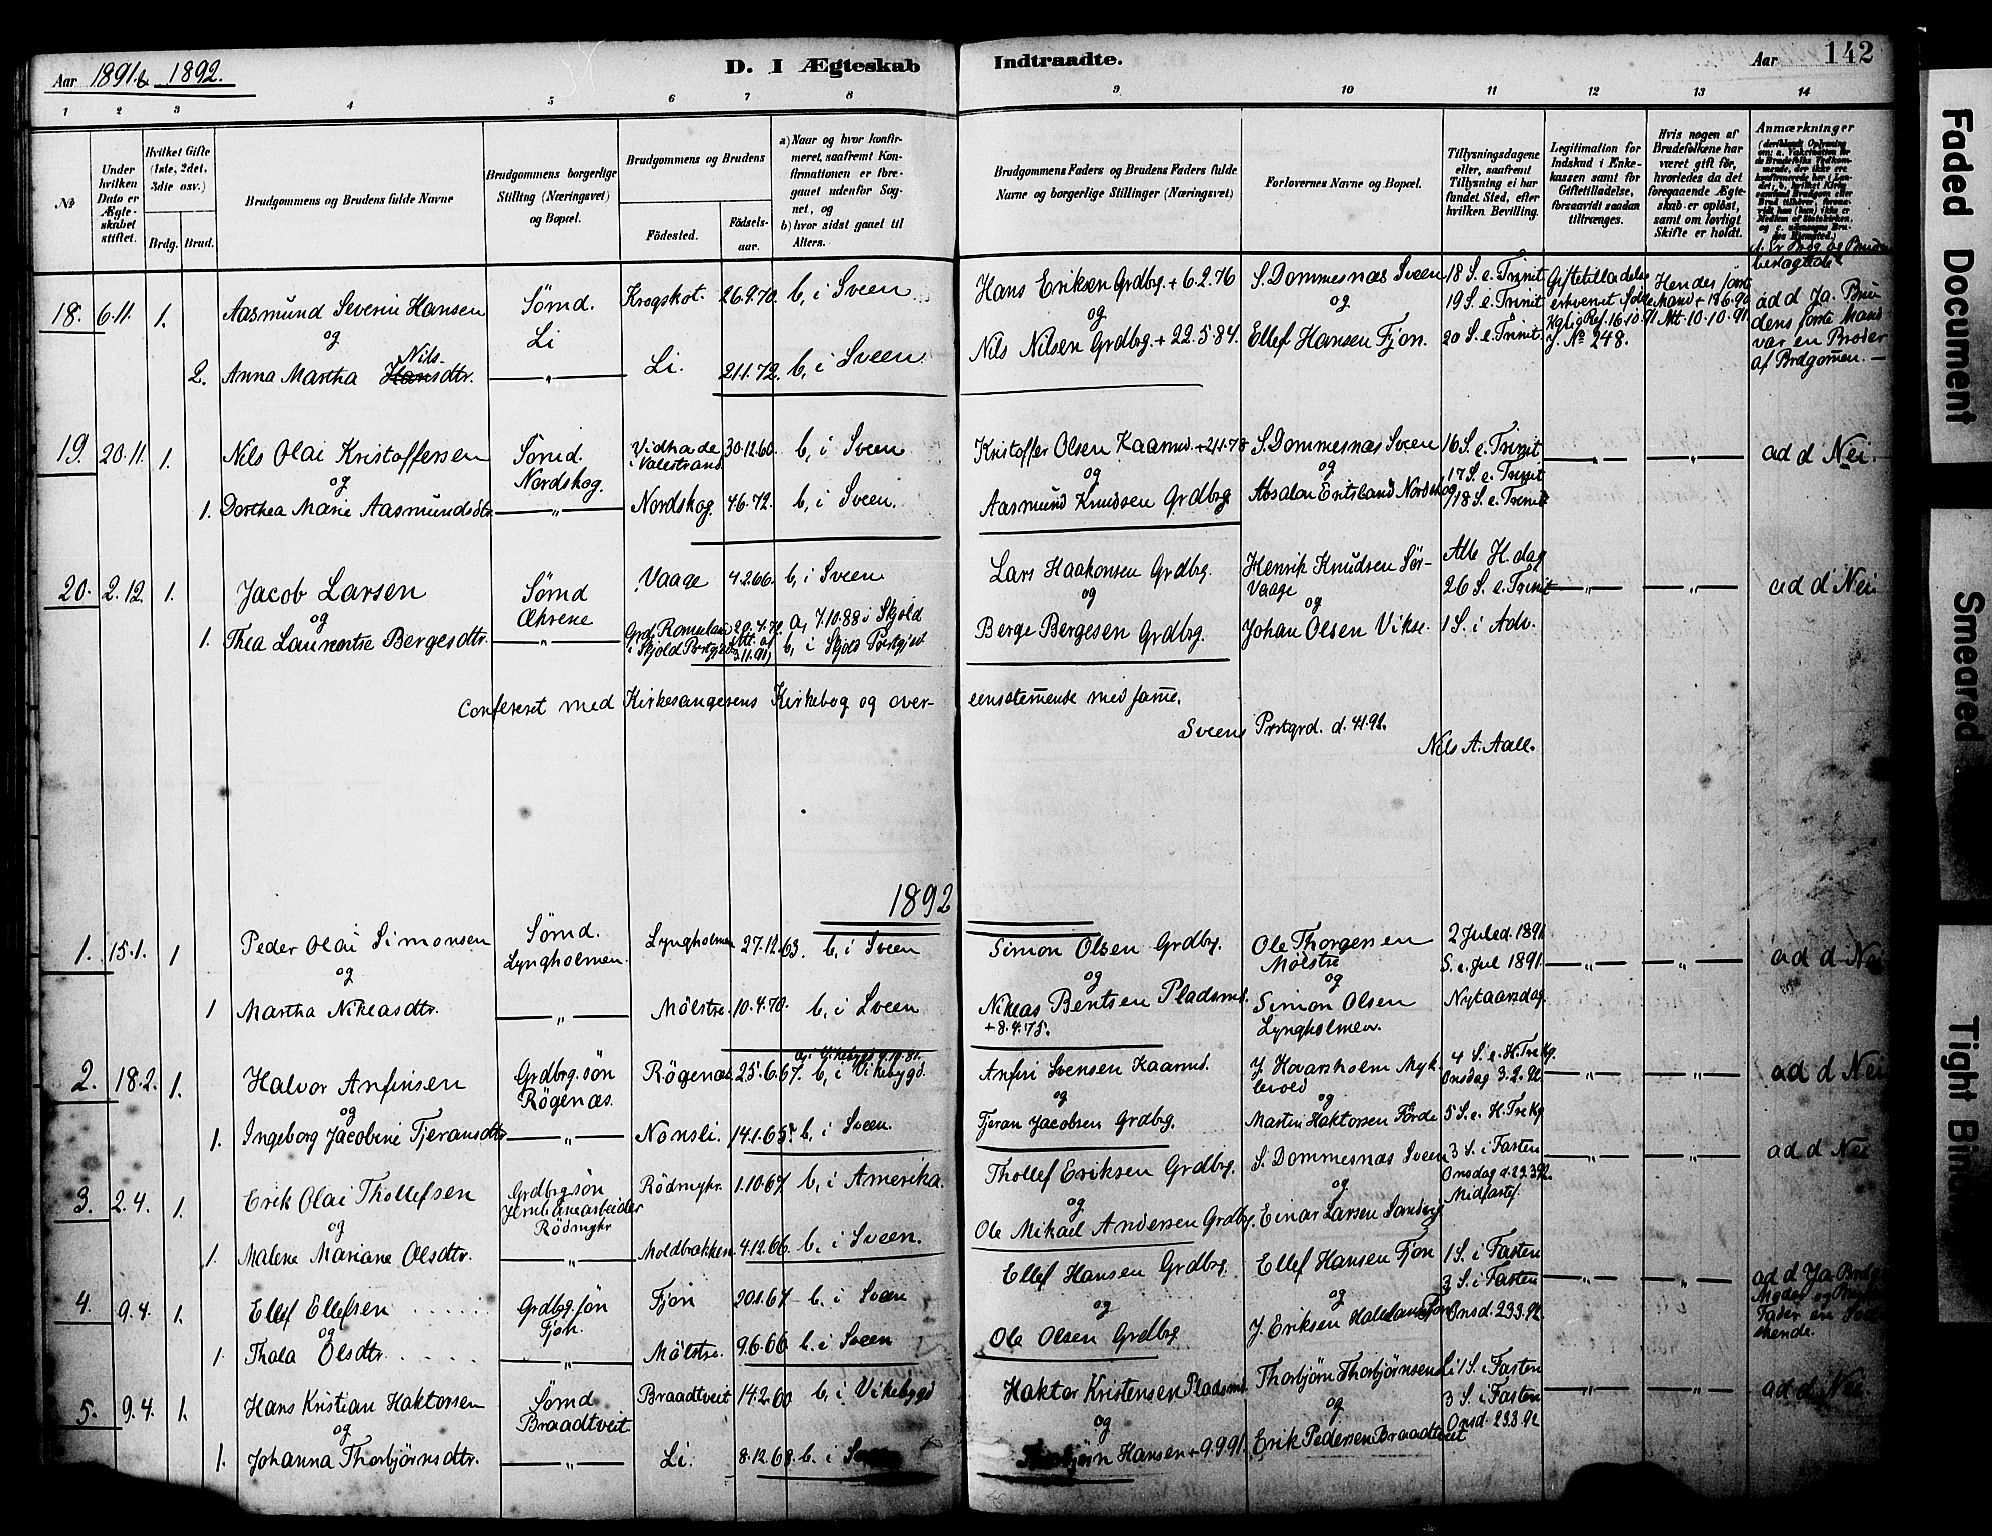 Aar 1891 & 1892.
D. I Ægteskab Indtraadte.
Aar 142
1 2 3 4 5 6 7 8 9 10 11 12 13 14
No
Under hvilken Dato er Ægteskabet stiftet.
Hvilket Gifte (1ste, 2det, 3die osv.)
Brdg. Brud.
Brudgommens og Brudens fulde Navne
Brudgommens borgerlige Stilling (Næringsvei) og Bopæl.
Brudgommens og Brudens
Fødested. Fødsels-aar.
a) Naar og hvor konfirmeret, saafremt Konfirmationen er foregaaet udenfor Sognet, og
b) hvor sidst gaaet til Alters.
Brudgommens Faders og Brudens Faders fulde Navne og borgerlige Stillinger (Næringsvei)
Forlovernes Navne og Bopæl.
Tillysningsdagene eller, saafremt Tillysning ei har fundet Sted, efter hvilken Bevilling.
Legitimation for Indskud i Enkekassen samt for Giftetilladelse, forsaavidt saadan tiltrænges.
Hvis nogen af Brudefolkene har været gift før, hvorledes da det foregaaende Ægteskab er opløst, samt om lovligt Skifte er holdt.
Anmærkninger
18. 6.11. 1. Aasmund Severin Hansen Sømd. Li Krogskot. 26.9.70. b, i Sveen Hans Eriksen Grdbrg. + 6.2.76 S. Dommesnæs Sveen 18 S. e. Trinit
og og og 19 S. e. Trinit 20 S. e. Trinit
2. Anna Martha Nils Hansdtr. — " — Li. 21.1.72. b, i Sveen Nils Nilsen Grdbrg. + 22.5.84. Ellef Hansen Fjon.
Giftetilladelse erhvervet ifølge Kglig Res. 16.10.91. J. No 248.
Hendes første Mand + 18.6.90 Att. 10.10.91.
ad d Ja. Brudens første Mand var en Broder af Brdgomen. —
19. 20.11. 1. Nils Olai Kristoffersen Sømd. Nordskog. Vidhade i Valestrand 30.12.60. b, i Sveen Kristoffer Olsen Kaarmd. + 21.1.78 S. Dommesnæs Sveen 16 S. e. Trinit — " — — " — ad d Nei.
og og og 17 S. e. Trinit
1. Dorthea Marie Aasmundsdtr. — " — Nordskog. 4.6.72. b, i Sveen. Aasmund Knudsen Grdbrg. Absalon Eritsland Nordskog 18 S. e. Trinit
20. 2.12. 1. Jacob Larsen Sømd Økrene Vaage 4.2.66. b, i Sveen Lars Haakonsen Grdbrg. Henrik Knudsen Sør-Vaage Alle H. dag
og og og 26 S. e. Trinit — " — — " — ad d Nei
1. Thea Laurentse Bergesdtr. — " — Grd. Romsland i Skjold Prstgjeld 20.4.72 (Att. af 3.11.91) a, 7.10.88 i Skjold b, i Skjold Prstgjeld Berge Bergesen Grdbrg. Johan Olsen Vikse. 1 S. i Adv.
Confereret med Kirkesangerens Kirkebog og over- eensstemende med same.
Sveens Prstgrd. d. 4.1.92.
Nils A. Aall.
1892
1. 15.1. 1 Peder Olai Simonsen Sømd. Lyngholmen. Lyngholmen 27.12.63. b, i Sveen Simon Olsen Grdbrg. Ole Thorgersen Mølstre 2 Juled. 1891
og og og S. e. Jul 1891. — " — — " — ad d Nei
1 Martha Nikeasdtr. — " — Mølstre. 10.4.70. b, i Sveen Nikeas Bentsen Pladsmd. + 8.4.75. Simon Olsen Lyngholmen. Nytaarsdag.
2. 18.2. 1. Halvor Anfinsen Grdbrg. søn Røgenæs. Røgenæs 25.6.67. a, i Vikebygd 9.10.81. b, i Vikebygd. Anfin Svensen Kaarmd. J. Hovarsholm Myklevold 4 S. e. H. Tre Kg.
og og og Onsdag 3.2.92. — " — — " — ad d Nei
1. Ingeborg Jacobine Tjeransdtr — " — Nonsli. 14.1.65. b, i Sveen. Tjeran Jacobsen Grdbrg. Martin Haktorsen Førde 5 S. e. H. Tre Kg
3. 2.4. 1. Erik Olai Thollefsen Grdbrg søn Jernbanearbeider Rødmyhr Rødmyhr. 1.10.67 b, i Amerika. Thollef Eriksen Grdbrg. S. Dommesnæs Sveen 3 S. i Fasten — " — — " — ad d Nei
og og og Onsdag d. 23.3.92. Midfaste.
1. Malene Mariane Olsdtr. — " — Moldbakken. 4.12.66. b, i Sveen. Ole Mikael Andersen Grdbrg. Einar Larsen
4. 9.4. 1. Ellef Ellefsen Grdbrg. søn Fjon. Fjon 20.1.67 b. i Sveen Ellef Hansen Grdbrg. Ellef Hansen Fjon 1 S. i Fasten
og og og 3 S. i Fasten — " — — " — ad d Ja
1. Thala Olsdtr. — " — Mølstre. 9.6.66. b. i Sveen Ole Olsen Grdbrg J. Eriksen Onsd. 23.3.92.
5. 9.4. 1. Hans Kristian Haktorsen Sømd Braadtveit. Braadtveit 14.2.60 b, i Vikebygd Haktor Kristensen Pladsmd. Thorbjørn Thorbjørnsen Li 1 S. i Fasten — " — — " — ad d Nei
og og og 3 S. i Fasten
1. Johanna Thorbjørnsdtr. — " — Li. 8.12.68. b. i Sveen Thorbjørn Hansen + 9.9.91. Erik Pedersen Braadtveit Onsd. 23.3.92
Faded Document
Smeared
Tight Bind